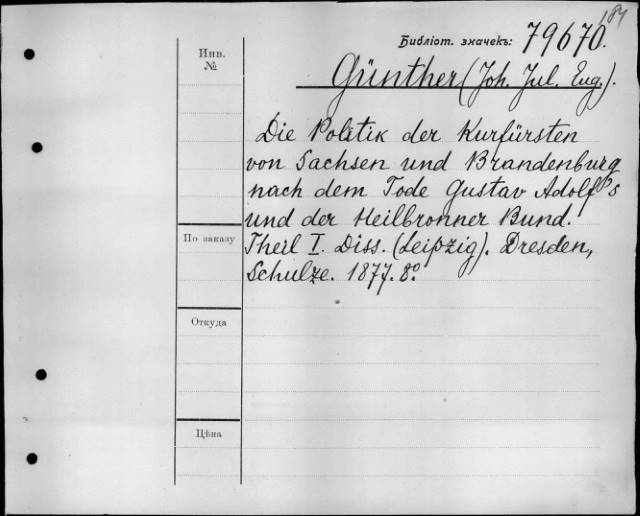 184
Библіот. значекъ: 79670.
Инв.
№
Günther (Joh. Jul. Eug.).
Die Politik der Kurfürsten
von Sachsen und Brandenburg
nach dem Tode Gustav Adolf's
und der Heilbronner Bund.
Theil I. Diss. (Leipzig). Dresden,
Schulze. 1877. 8º.
По заказу
Откуда
Цѣна